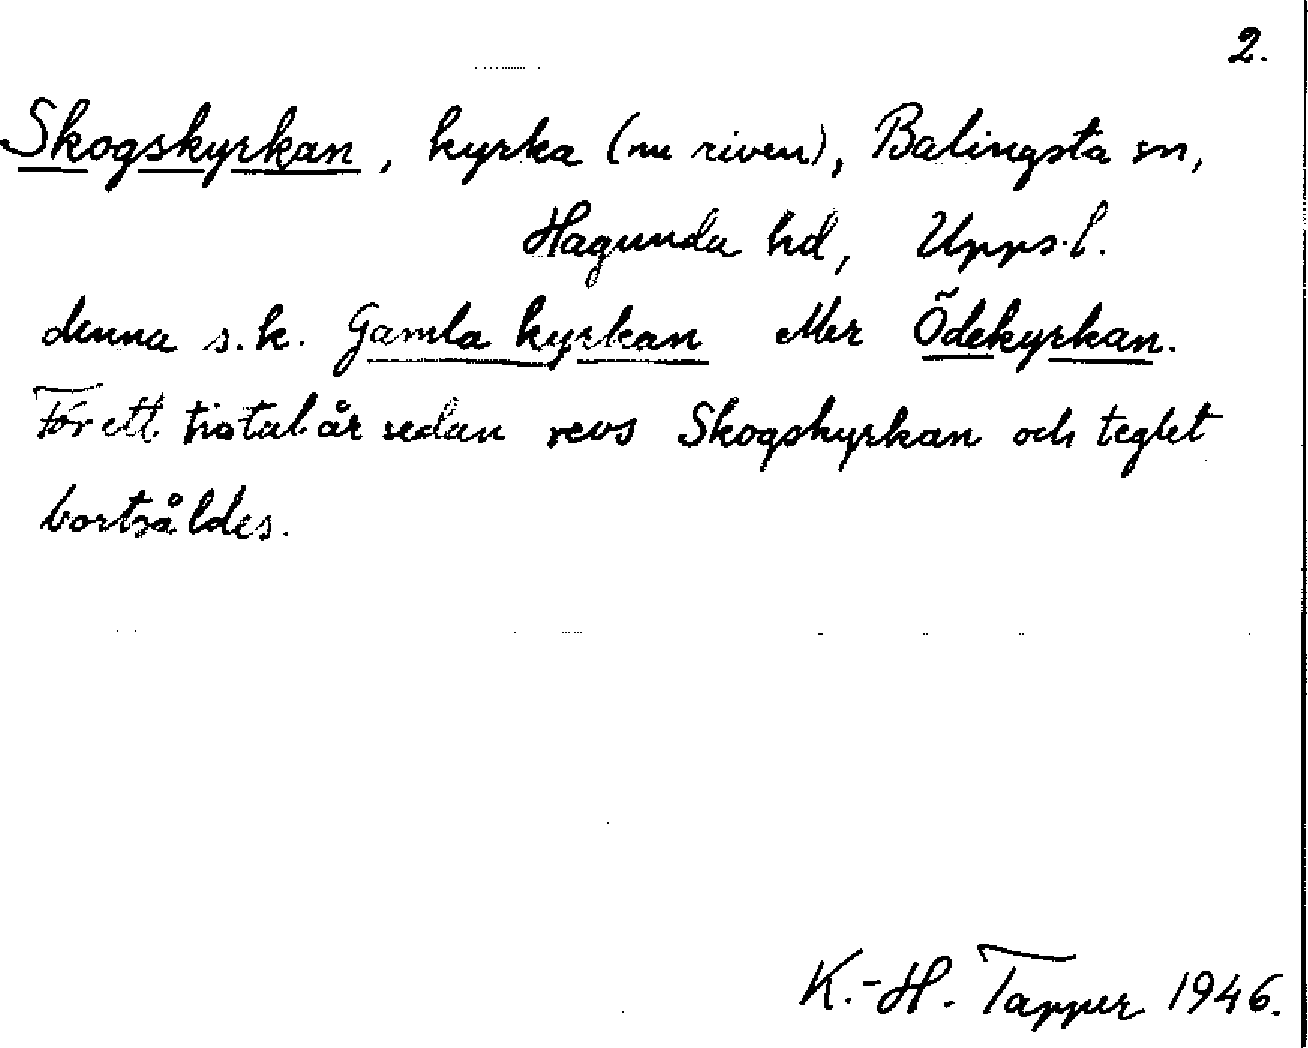 2.
Skogskyrkan, kyrka (nu riven), Balingsta sn,
Hagunda hd, Upps.l.
denna s.k. Gamla kyrkan eller Ödekyrkan.
För ett tiotal år sedan revs Skogskyrkan och teglet
bortsåldes.
K.-H. Tapper 1946.